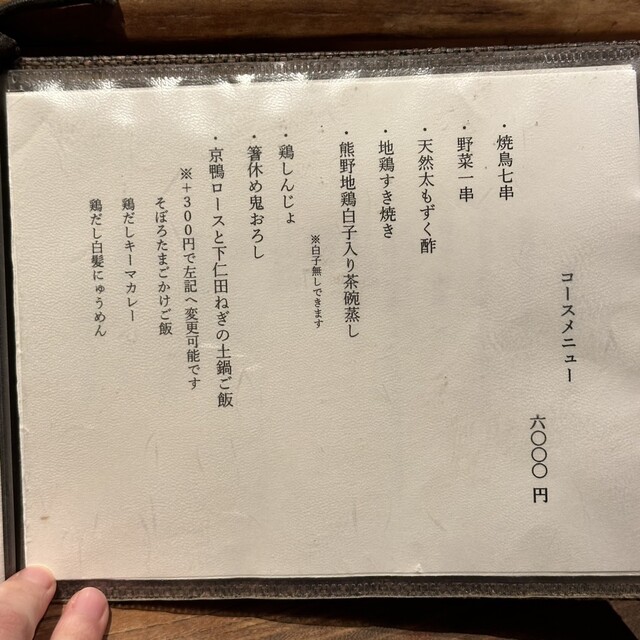 コースメニュー
六〇〇〇 円
・焼鳥七串
・野菜一串
・天然太もずく酢
・地鶏すき焼き
・熊野地鶏白子入り茶碗蒸し
※白子無しできます
・鶏しんじょ
・箸休め鬼おろし
・京鴨ロースと下仁田ねぎの土鍋ご飯
※+300円で左記へ変更可能です
そぼろたまごかけご飯
鶏だしキーマカレー
鶏だし白髪にゅうめん